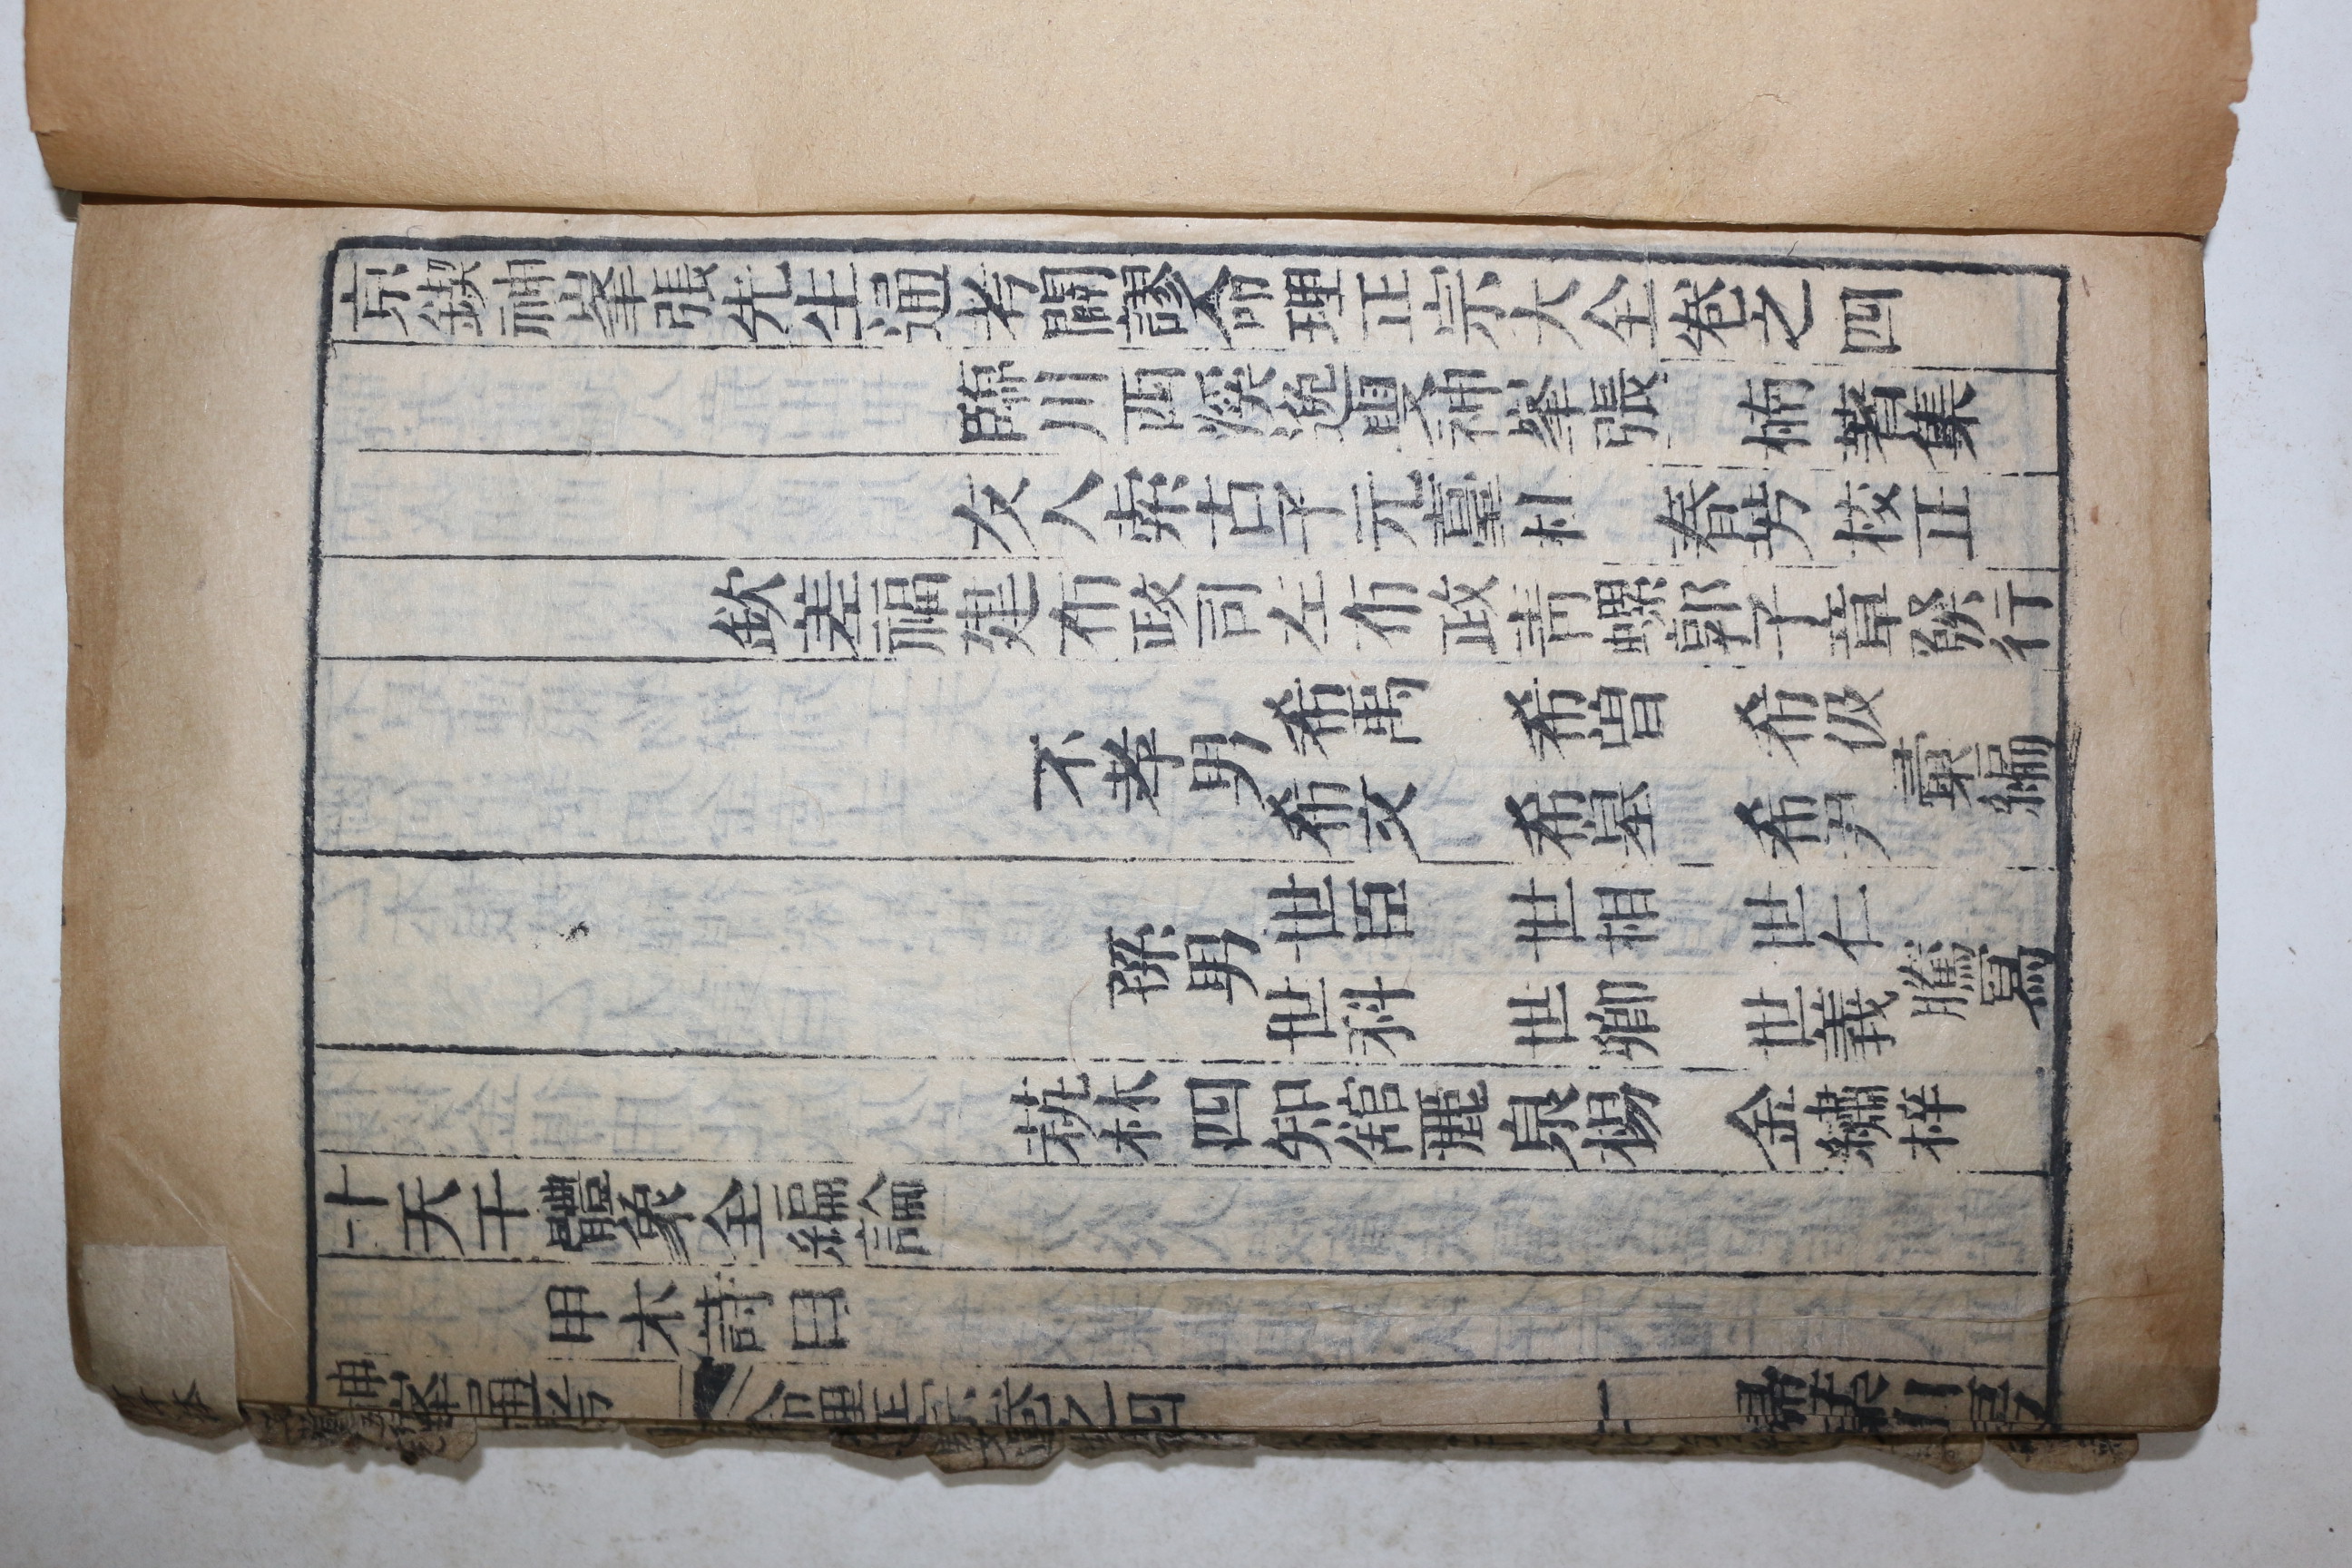 京鍥神峯張先生通考闢謬命理正宗大全卷之四
臨川西溪逸叟神峯張 楠著集
友人索古子元臺杜 春芳校正
欽差福建布政司左布政青螺郭子章發行
不孝男 希禹 希曾 希伋 彙編
希文 希墓 希尹
孫男 世臣 世相 世仁 騰寫
世科 世卿 世義
萟林四知舘麗泉楊 金繡梓
十天干體象全編論
甲木詩曰
神峯通考 命理正宗卷之四 一 掃葉山房